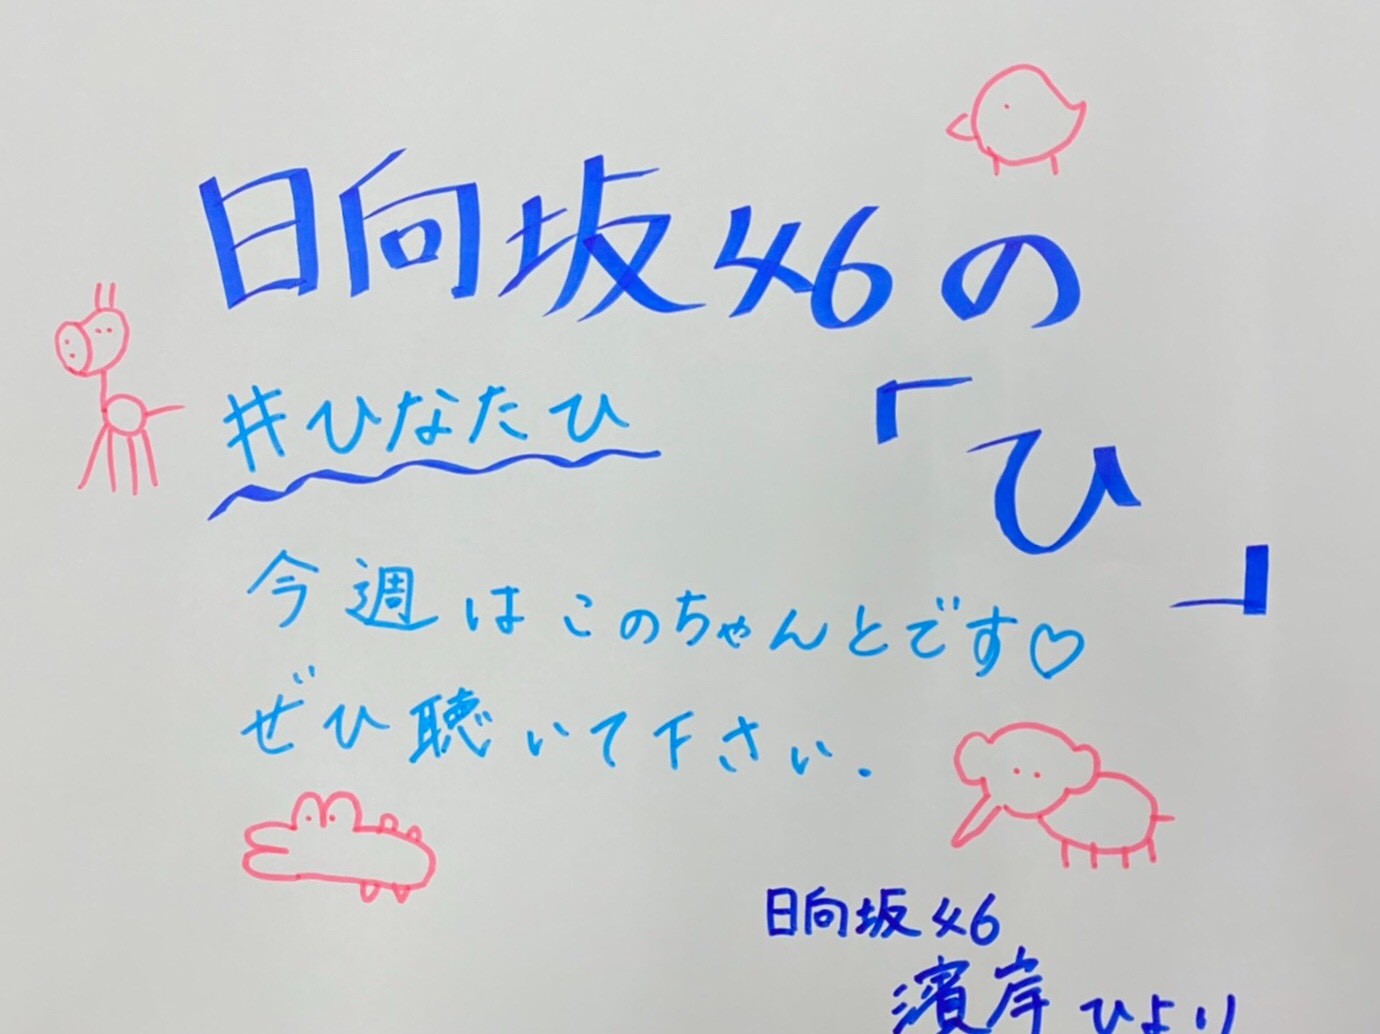 日向坂46の
「ひ」
#ひなたひ
今週はこのちゃんとです♡
ぜひ聴いて下さい.
日向坂46
濱岸ひより